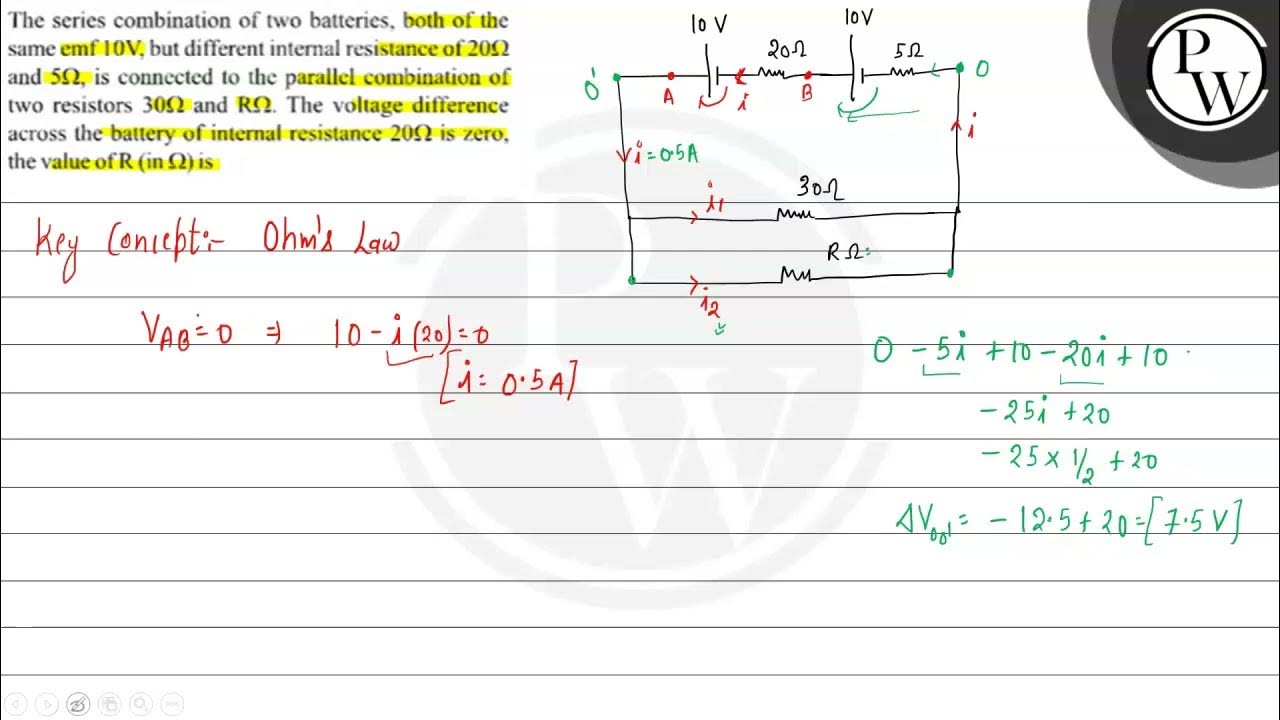 The series combination of two batteries, both of the
same emf 10V, but different internal resistance of 20Ω
and 5Ω, is connected to the parallel combination of
two resistors 30Ω and RΩ. The voltage difference
across the battery of internal resistance 20Ω is zero,
the value of R (in Ω) is
10 V
10V
20Ω
5Ω
O'
A
i
B
O
i = 0.5A
i
i1
30Ω
RΩ
i2
P
W
Key Concept:- Ohm's Law
VAB = 0 ⇒ 10 - i (20) = 0
[i = 0.5A]
0 - 5i + 10 - 20i + 10
- 25i + 20
- 25 × 1/2 + 20
ΔVoo' = - 12.5 + 20 = [7.5 V]